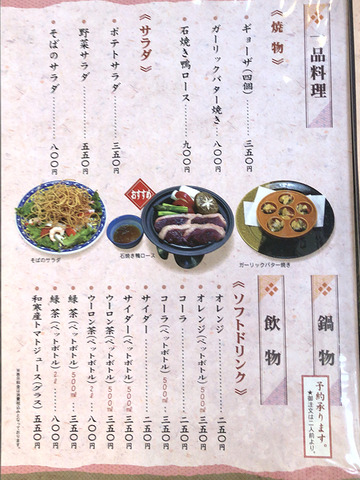 一品料理
《焼物》
ギョーザ(四個)……三五〇円
ガーリックバター焼き…八〇〇円
石焼き鴨ロース………九〇〇円
《サラダ》
ポテトサラダ…………三五〇円
野菜サラダ……………五五〇円
そばのサラダ…………八〇〇円
おすすめ
そばのサラダ
石焼き鴨ロース
ガーリックバター焼き
鍋物
予約承ります。
★御注文は二人前より。
飲物
《ソフトドリンク》
オレンジ……二五〇円
オレンジ(ペットボトル)500㎖…三五〇円
コーラ……二五〇円
コーラ(ペットボトル)500㎖…三五〇円
サイダー……二五〇円
サイダー(ペットボトル)500㎖…三五〇円
ウーロン茶(ペットボトル)500㎖…三五〇円
ウーロン茶(ペットボトル)2ℓ…八〇〇円
緑茶(ペットボトル)500㎖…三五〇円
緑茶(ペットボトル)2ℓ…八〇〇円
和寒産トマトジュース(グラス)五五〇円